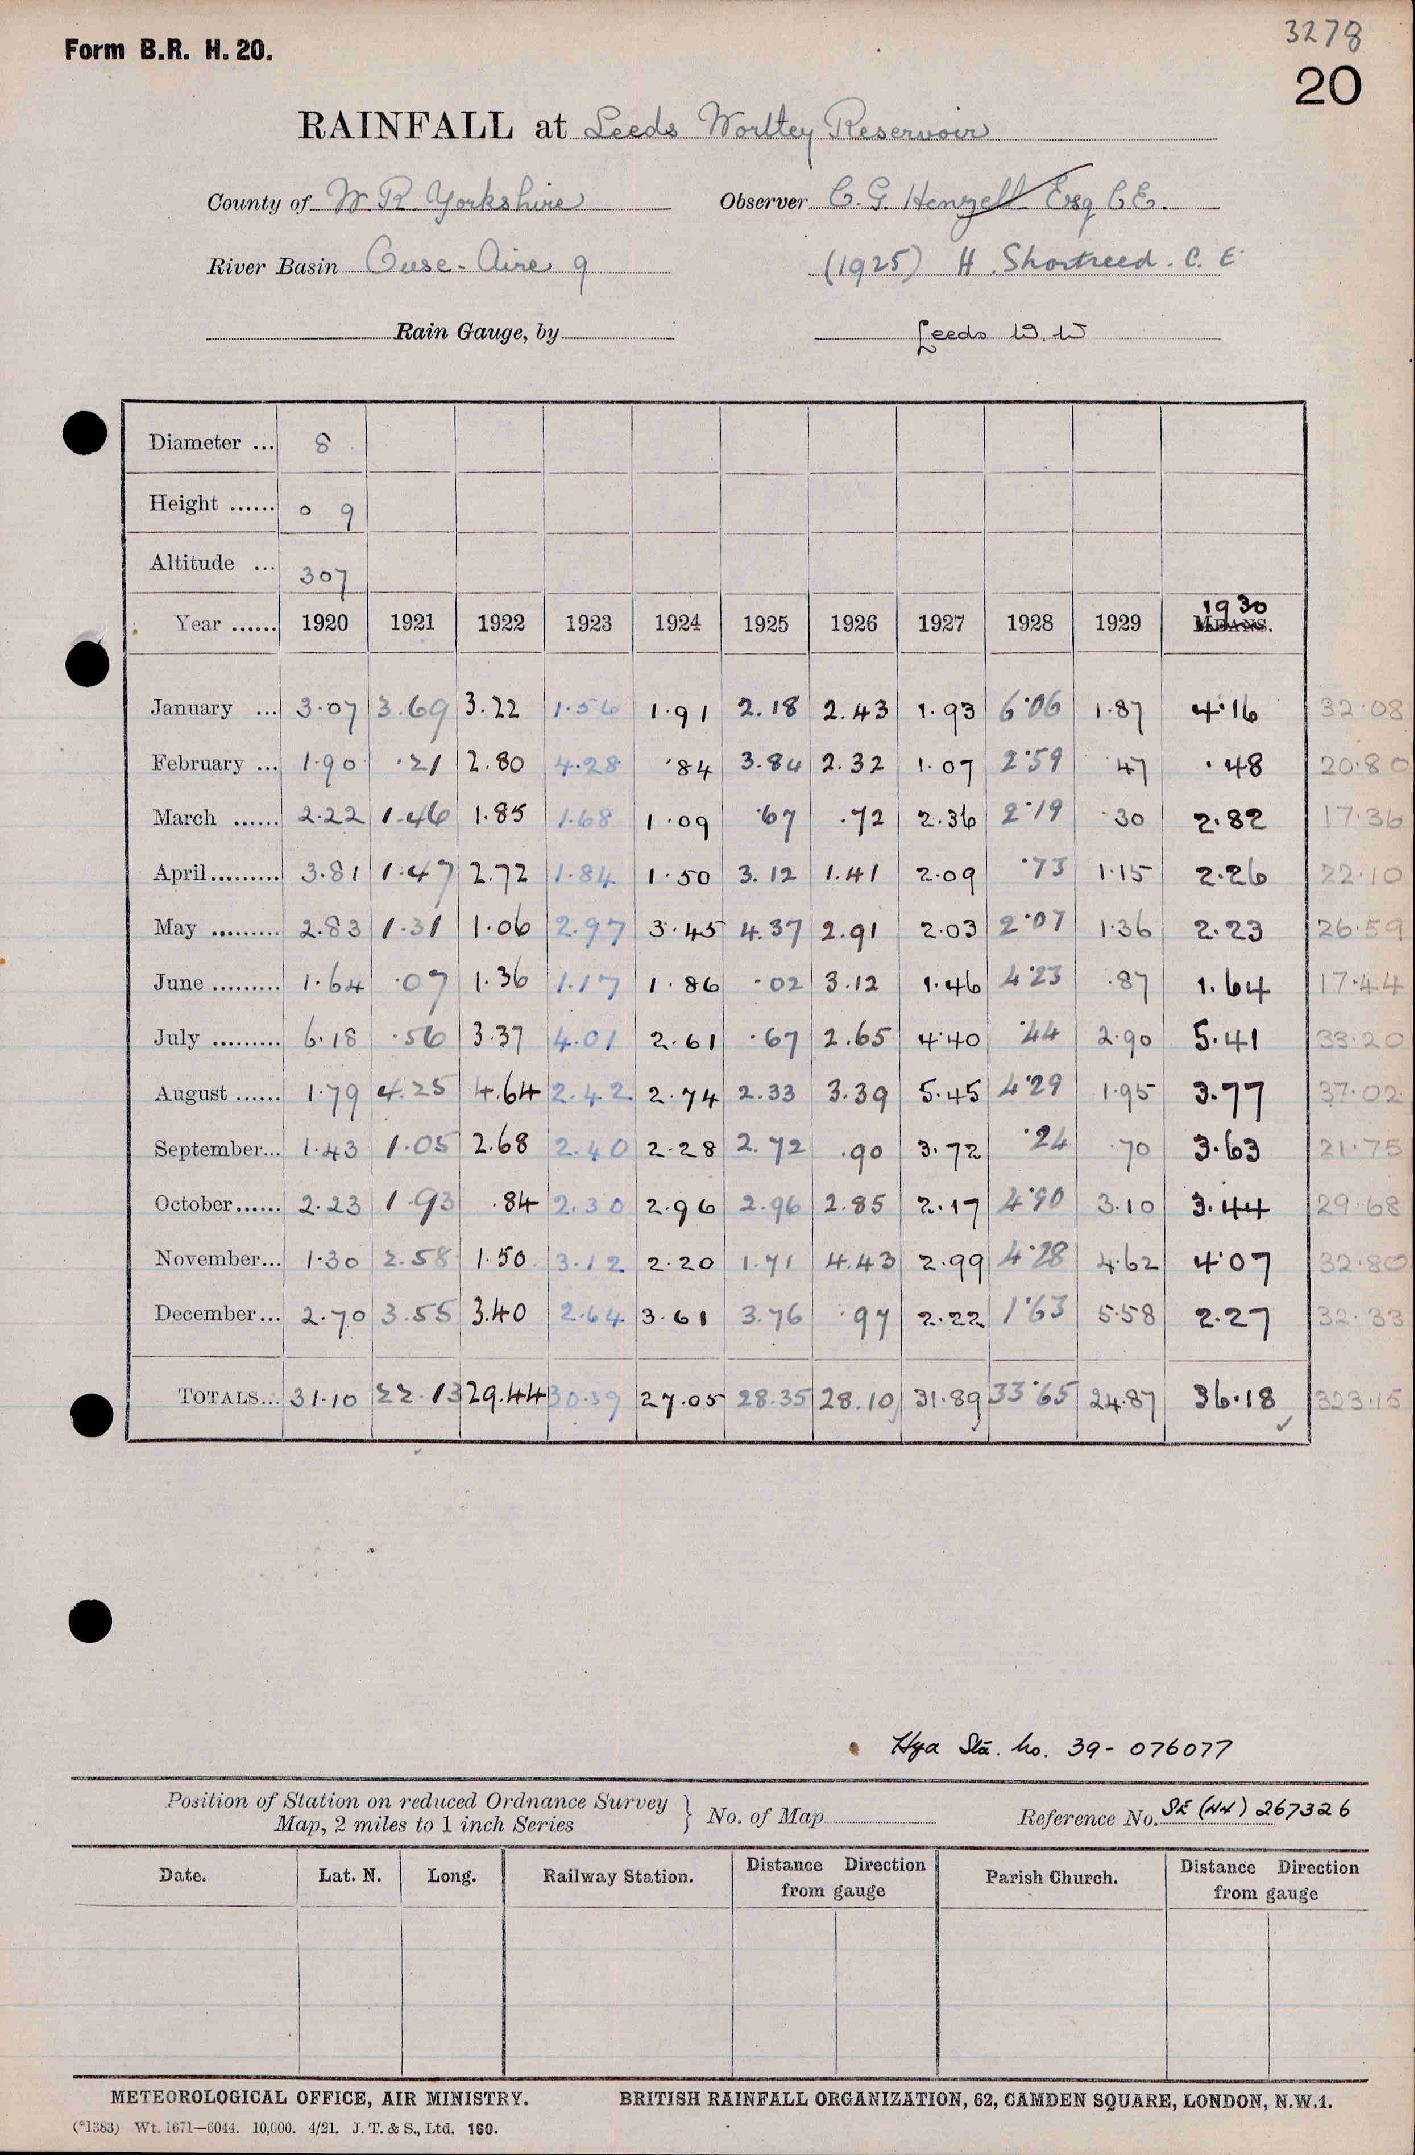 3278
Form B.R. H. 20.
20
RAINFALL at Leeds Wortley Reservoir
County of W R Yorkshire Observer C. G. Henzell Esq C.E.
River Basin Ouse - Aire 9 (1925) H. Shortreed. C. E.
Rain Gauge, by Leeds W.W
Diameter ... 8
Height ...... 0 9
Altitude ... 307
Year ...... 1920 1921 1922 1923 1924 1925 1926 1927 1928 1929 1930 MEANS.
January ... 3.07 3.69 3.22 1.56 1.91 2.18 2.43 1.93 6.06 1.87 4.16 32.08
February ... 1.90 .21 2.80 4.28 .84 3.84 2.32 1.07 2.59 .47 .48 20.80
March ...... 2.22 1.46 1.85 1.68 1.09 .67 .72 2.36 2.19 .30 2.82 17.36
April ......... 3.81 1.47 2.72 1.84 1.50 3.12 1.41 2.09 .73 1.15 2.26 22.10
May ......... 2.83 1.31 1.06 2.97 3.45 4.37 2.91 2.03 2.07 1.36 2.23 26.59
June ......... 1.64 .07 1.36 1.17 1.86 .02 3.12 1.46 4.23 .87 1.64 17.44
July ......... 6.18 .56 3.37 4.01 2.61 .67 2.65 4.40 .44 2.90 5.41 33.20
August ...... 1.79 4.25 4.64 2.42 2.74 2.33 3.39 5.45 4.29 1.95 3.77 37.02
September... 1.43 1.05 2.68 2.40 2.28 2.72 .90 3.72 .24 .70 3.63 21.75
October...... 2.23 1.93 .84 2.30 2.96 2.96 2.85 2.17 4.90 3.10 3.44 29.68
November... 1.30 2.58 1.50 3.12 2.20 1.71 4.43 2.99 4.28 4.62 4.07 32.80
December... 2.70 3.55 3.40 2.64 3.61 3.76 .97 2.22 1.63 5.58 2.27 32.33
TOTALS... 31.10 22.13 29.44 30.39 27.05 28.35 28.10 31.89 33.65 24.87 36.18 323.15
Hya Sta. No. 39 - 076077
Position of Station on reduced Ordnance Survey Map, 2 miles to 1 inch Series } No. of Map Reference No. SE (44) 267326
Date. Lat. N. Long. Railway Station. Distance Direction from gauge Parish Church. Distance Direction from gauge
METEOROLOGICAL OFFICE, AIR MINISTRY. BRITISH RAINFALL ORGANIZATION, 62, CAMDEN SQUARE, LONDON, N.W.1.
(*1383) Wt. 1671—6044. 10,000. 4/21. J. T. & S., Ltd. 160.